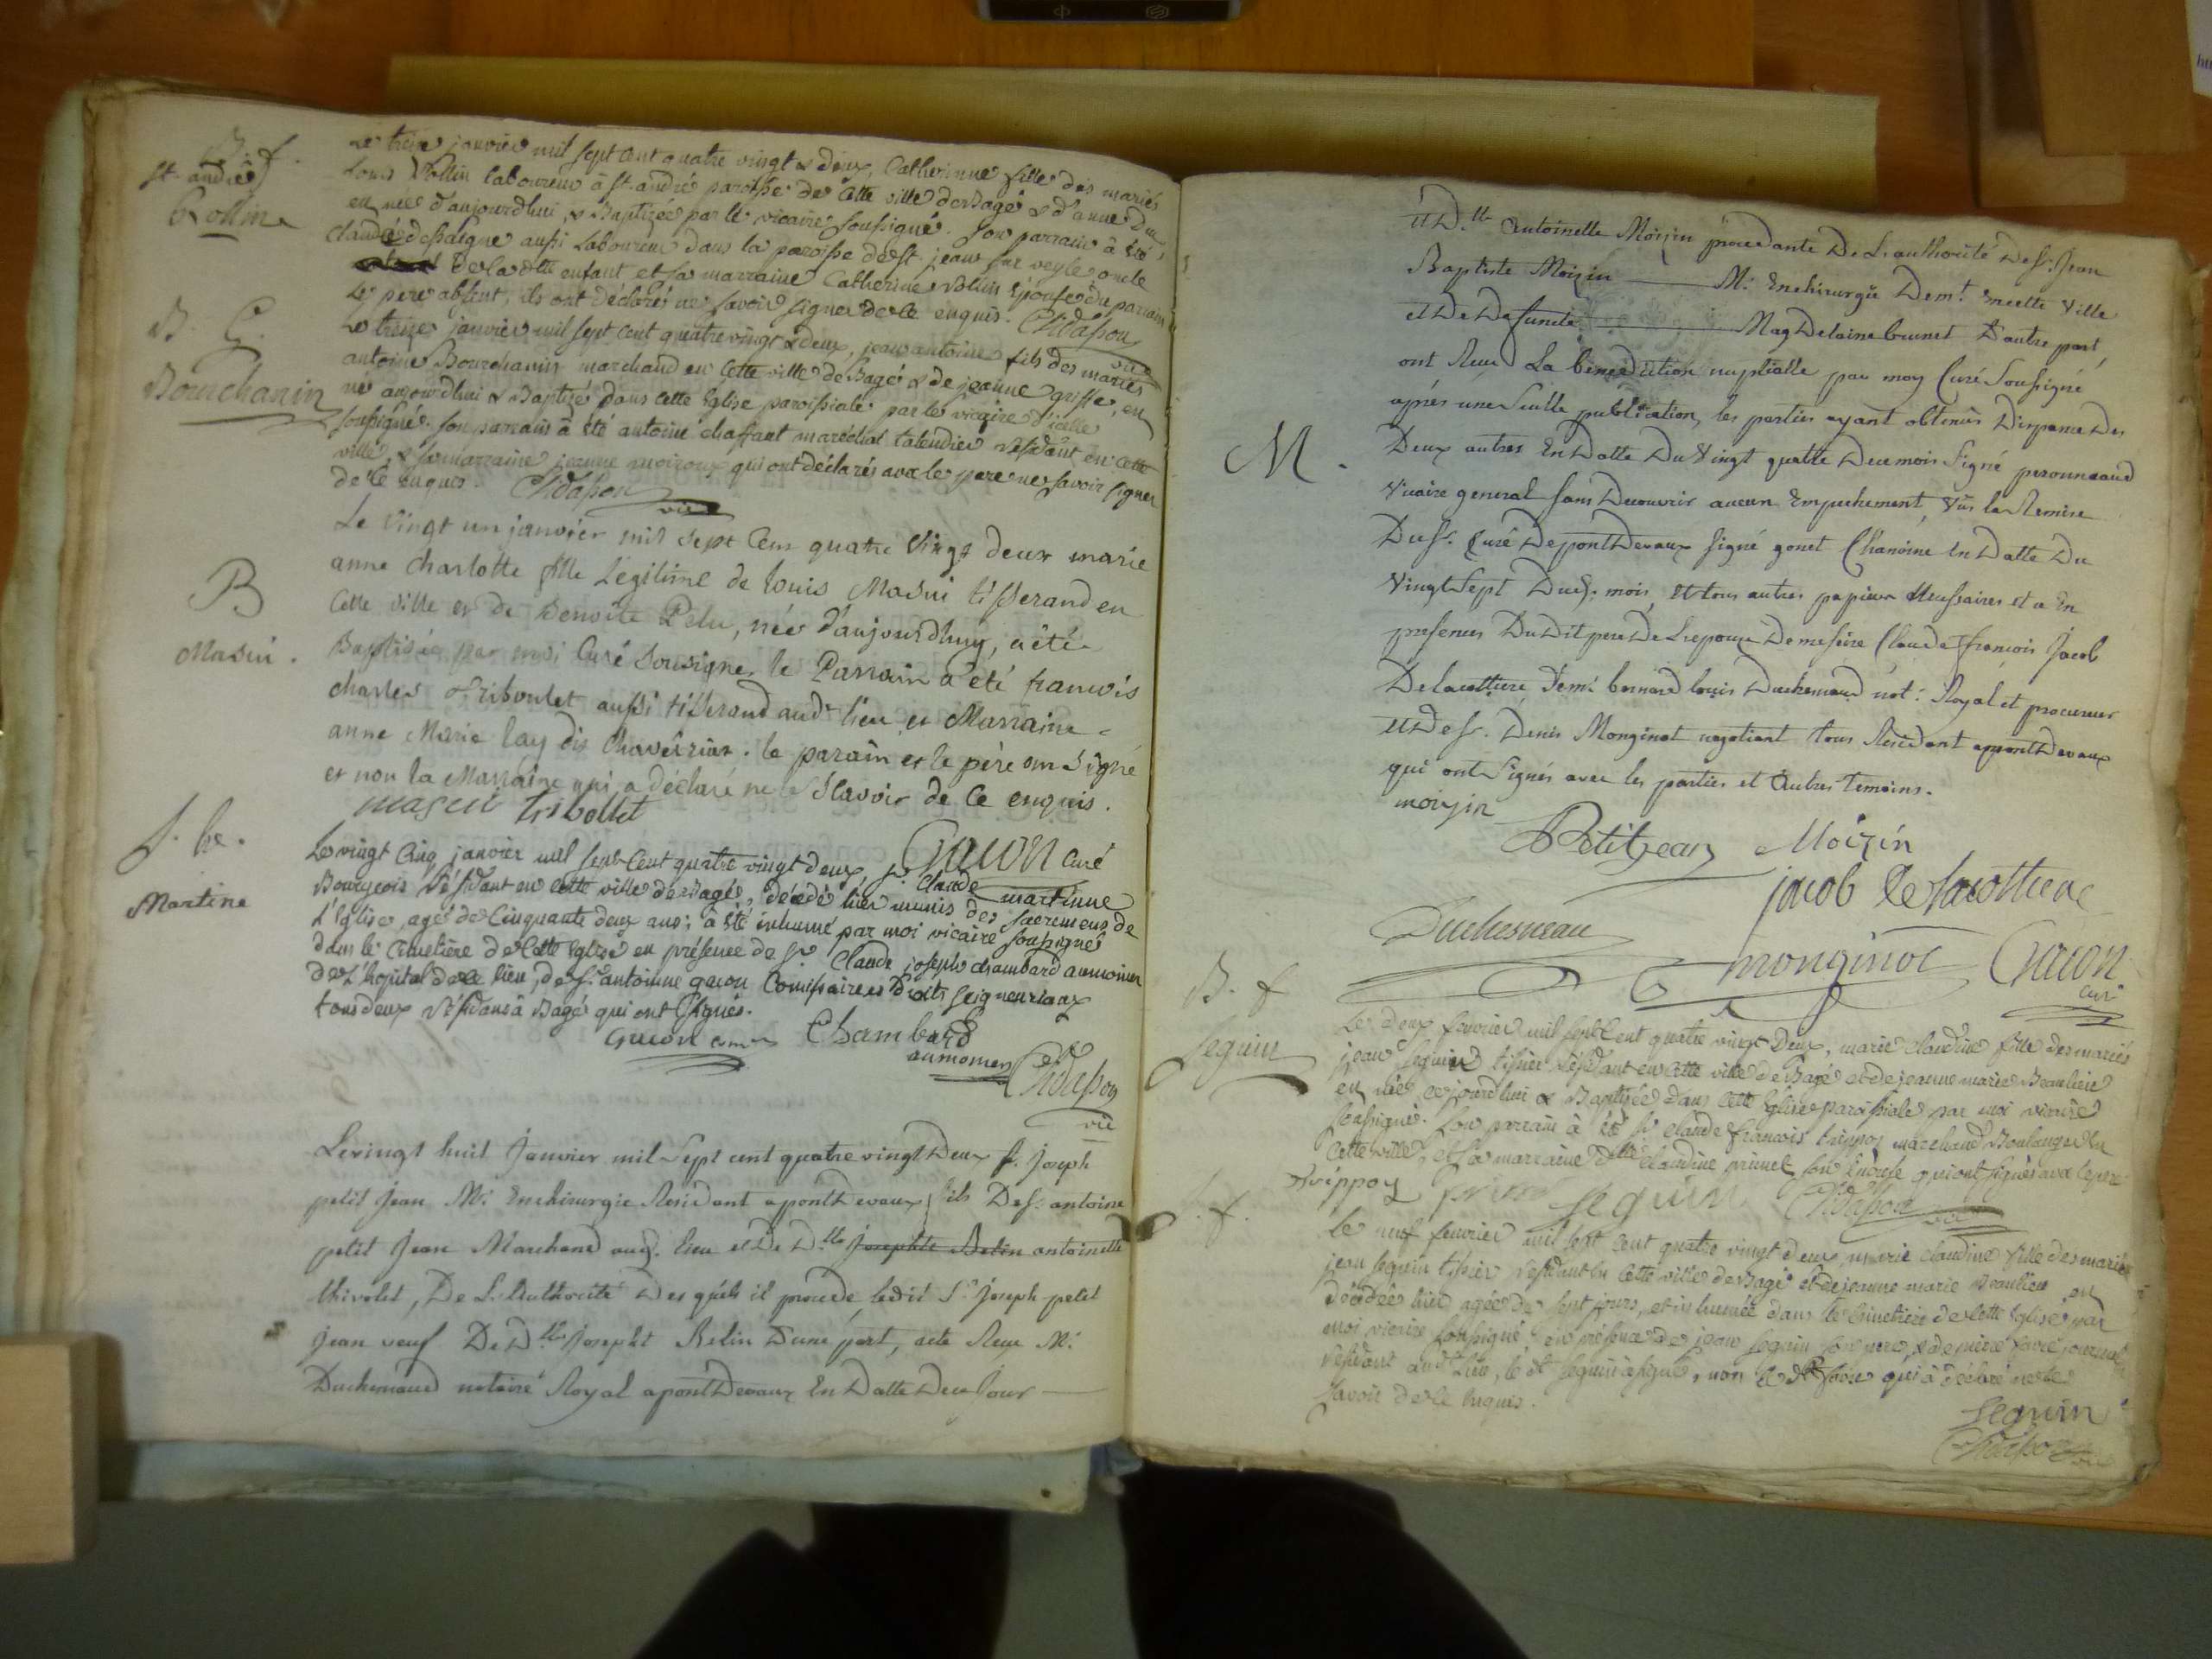 B. f.
St. andré
Vollin
Le treize janvier mil sept cent quatre vingt & deux, Catherinne fille des mariés
Louis Vollin laboureur à St. andré paroisse de cette ville de Bagé & d'anne
en née d'aujourdhui, & Baptizée par le vicaire soussigné. Son parrain à été
Claude dessaigne aussi Laboureur dans la paroisse de St. jean sur veyle oncle
de la dtte enfant et sa marraine Catherine Vollin Epouse du parrain
Le pere absent, ils ont déclarés ne savoir signer de ce enquis. Chidasson
vic
B. G.
Bourchanin
Le treize janvier mil sept cent quatre vingt & deux, jean antoine fils des mariés
antoine Bourchanin marchand en cette ville de Bagé & de jeanne griffe, en
né aujourdhui & Baptizé dans cette Eglise paroissiale par le vicaire d'icelle
soussigné. Son parrain à été antoine chaffaut maréchal talendier résidant en cette
ville, & sa marraine jeanne moiroux qui ont déclarés avec le pere ne savoir signer
de ce enquis. Chidasson
vic
B
Masui.
Le vingt un janvier mil sept Cent quatre vingt deux marie
anne charlotte fille Legitime de louis Masui tisserand en
cette ville et de Benoite Pelu, née d'aujourdhuy, a été
Baptisée par moi Curé Sousigné, le Parrain a été francois
charles triboulet aussi tisserand audt lieu et Marraine
anne Marie lay dis Chaveirias. le parain et le père ont signé
et non la Marraine qui a déclaré ne le Sçavoir de Ce enquis.
masui tribollet
Gacon curé
S. he.
Martine
Le vingt Cinq janvier mil sept Cent quatre vingt deux, Sr. Claude martinne
Bourgeois résidant en cette ville de Bagé, décédé hier munis des sacremens de
l'Eglise, agé de Cinquante deux ans; à été inhumé par moi vicaire soussigné
dans le Cimetière de cette Eglise en présence de Sr Claude joseph chambard aumonier
de L'hopital de ce lieu, de Sr. antoinne gacon Commissaire es Droits seigneuriaux
tous deux résidans à Bagé qui ont signés.
Gacon comre Chambard
aumonier
Chidasson
vic
Le vingt huit Janvier mil Sept cent quatre vingt Deux Sr. Joseph
petit Jean Me. En chirurgie Residant a pontdevaux fils De Sr. antoine
petit Jean Marchand aud. lieu et De Dlle Josephte Belin antoinette
thivolet, De L'Authorité Desquels il procede ledit Sr Joseph petit
Jean veuf De Dlle Josephte Belin D'une part, acte Receu Me.
Duchenaud notaire Royal a pontDevaux En Datte Dece Jour
M.
Et D.lle Antoinette Moizin procedante De L'authorité De Sr. Jean
Baptiste Moizin Me. En chirurgie Demt. En cette Ville
et De Defuncte MagDelaine brunet D'autre part,
ont Receu La benediction nuptialle par moy Curé Soussigné
aprés une Seulle publication, les parties ayant obtenûs Dispance Des
Deux autres En Datte Du Vingt quattre Dece mois Signé peronneaud
Vicaire general sans Decouvrir aucun Empechement, Vûs la Remise
Du Sr. Curé De pontDevaux signé gonet Chanoine En Datte Du
Vingt Sept Dud. mois, et tous autres papiers Necessaires et a En
presences Du Dit pere De L'epouze De messire Claude francois Jacob
Delacottiere De me. bernard louis Duchenaud not. Royal et procureur
et De Sr. Denis Monginot negotiant tous Residant a pontDevaux
qui ont Signés avec les parties et Autres temoins.
moizin
Petitjean Moizin
jacob de lacottiere
Duchesneau
monginot Gacon
curé
B. f
Seguin
Le deux fevrier mil sept Cent quatre vingt Deux, marie claudine fille des mariés
jean Seguin tissier résidant en cette ville de Bagé et de jeanne marie Beaulieu
en née cejourdhui & Baptisée dans cette Eglise paroissiale par moi vicaire
soussigné. Son parrain à été Sr claude francois trippoz marchand Boulanger en
cette ville, et sa marraine Dlle claudine prunet son Epouse qui ont signés avec le pere
trippoz prunet Seguin Chidasson vic
S. f.
le neuf fevrier mil sept cent quatre vingt deux, marie claudine fille des mariés
jean seguin tissier résidant en cette ville de Bagé et de jeanne marie Beaulieu en
décédée hier agée de sept jours, et inhumée dans le Cimetiere de cette Eglise par
moi vicaire soussigné, en présence de jean Seguin son pere, & de pierre favre journal.
résidant audt Lieu, le dt Seguin a signé, non le dt favre qui à déclaré ne le
savoir de ce enquis.
Seguin
Chidasson vic